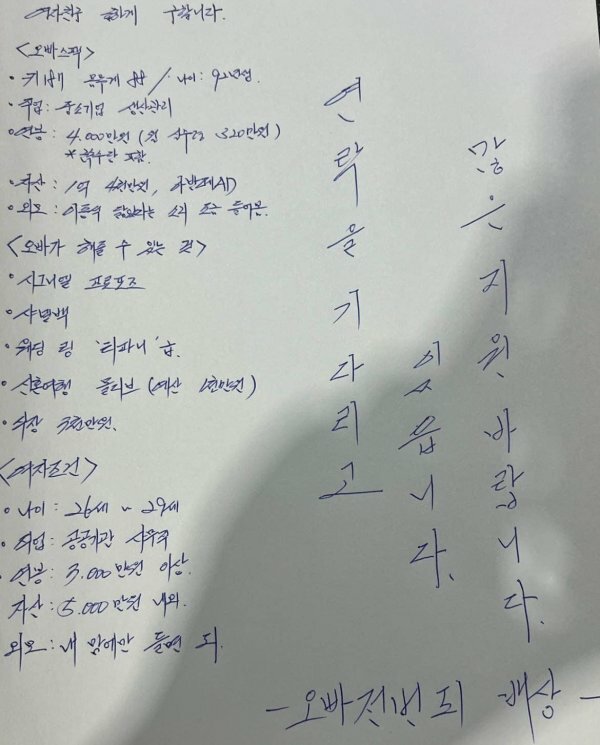 여자친구 급하게 구합니다.
<오빠스펙>
• 키 188 몸무게 88 / 나이: 92년생.
• 직업: 중소기업 생산관리
• 연봉: 4.000만원 (월 실수령 320만원)
* 특수란 포함.
• 자산: 1억 4천만원, 아반떼AD
• 외모: 이동욱 닮았다는 소리 조금 들어봄.
<오빠가 해줄 수 있는 것>
• 시그니엘 프로포즈
• 샤넬백
• 웨딩 링 '티파니'급.
• 신혼여행 몰디브 (예산 1천만원)
• 차량 3천만원.
<여자조건>
• 나이: 26세 ~ 29세
• 직업: 공공기관 사무직
• 연봉: 3.000만원 이상.
자산: 5.000만원 내외.
외모: 내 맘에만 들면 돼.
많은 지원 바랍니다.
연락을 기다리고
있읍니다.
- 오빠 전번 되 배상 -